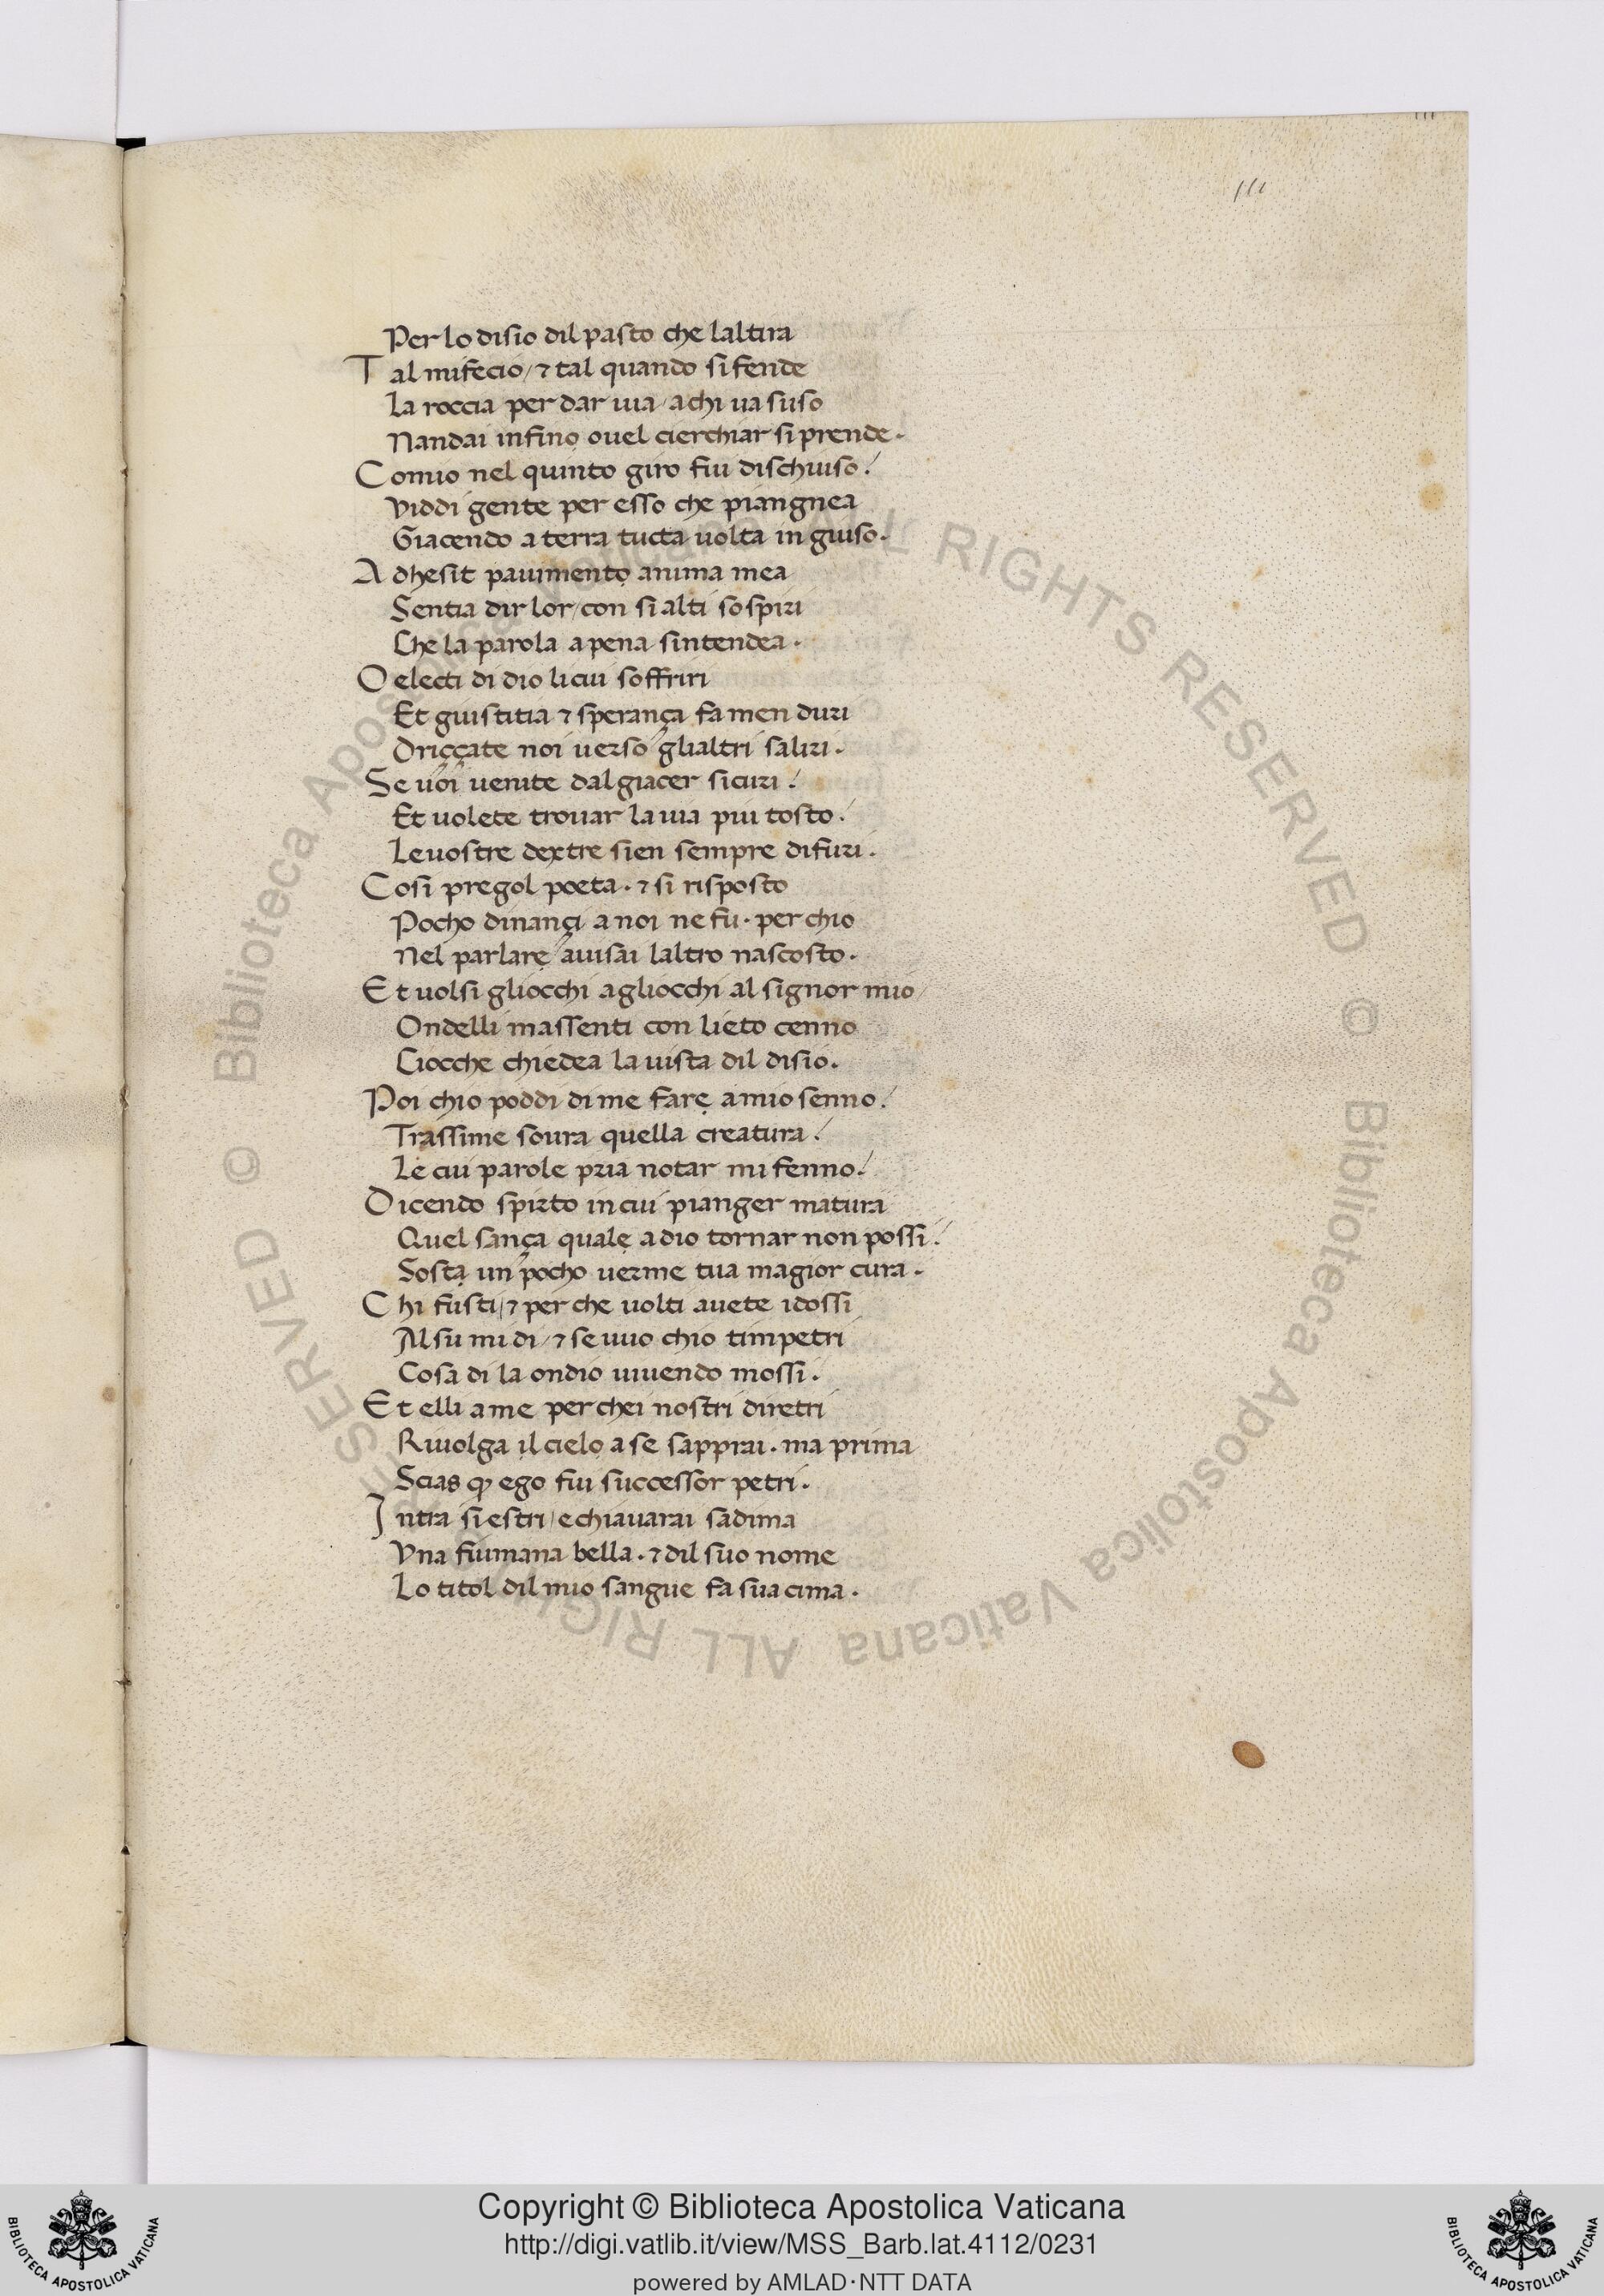 111
Per lo disio dil pasto che laltira
Tal mifecio / ⁊ tal quando sifende
La roccia per dar uia / achi ua suso
Nandai infino ouel cierchiar si prende.
Comio nel quinto giro fui dischiuso.
Viddi gente per esso che piangnea
Giacendo a terra tucta uolta in giuso.
Adhesit pauimento anima mea
Sentia dir lor / con si alti sospiri
Che la parola apena sintendea.
O electi di dio li cui soffriri
Et giustitia ⁊ sperança fa men duri
Driççate noi uerso glialtri saliri.
Se uoi uenite dal giacer sicuri.
Et uolete trouar la uia piu tosto.
Le uostre dextre sien sempre difuri.
Cosi pregol poeta. ⁊ si risposto
Pocho dinançi a noi ne fu. per chio
Nel parlare auisai laltro nascosto.
Et uolsi gliocchi agliocchi al signor mio /
Ondelli massenti con lieto cenno
Ciocche chiedea la uista dil disio.
Poi chio poddi di me fare amio senno.
Trassime soura quella creatura.
Le cui parole pria notar mi fenno.
Dicendo spirto in cui pianger matura
Quel sança quale adio tornar non possi.
Sosta un pocho uerme tua magior cura.
Chi fusti / ⁊ per che uolti auete idossi
Al su mi di / ⁊ se uuo chio timpetri
Cosa di la ondio uiuendo mossi.
Et elli ame per chei nostri diretri
Riuolga il cielo a se sapprai. ma prima
Scias ꝙ ego fui successor petri.
Intra siestri / e chiauarai sadima
Vna fiumana bella. ⁊ dil suo nome
Lo titol dil mio sangue fa sua cima.
© Biblioteca Apostolica Vaticana ALL RIGHTS RESERVED © Biblioteca Apostolica Vaticana ALL RIGHTS RESERVED
Copyright © Biblioteca Apostolica Vaticana
http://digi.vatlib.it/view/MSS_Barb.lat.4112/0231
powered by AMLAD·NTT DATA
BIBLIOTECA APOSTOLICA VATICANA
BIBLIOTECA APOSTOLICA VATICANA